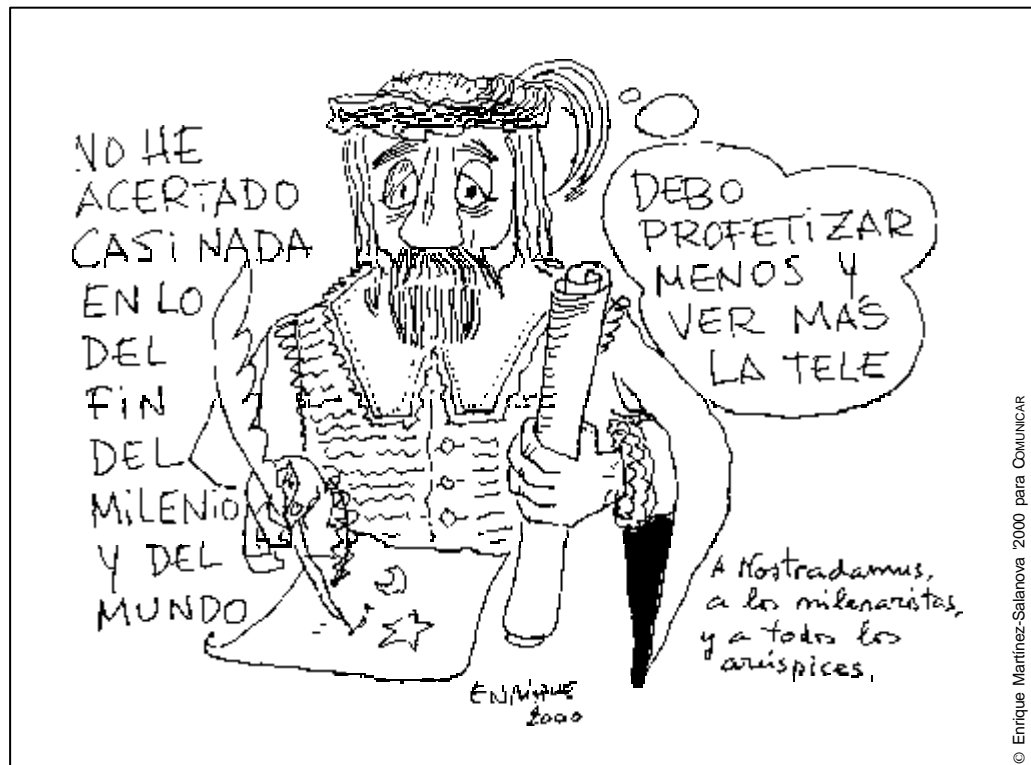 NO HE
ACERTADO
CASI NADA
EN LO
DEL
FIN
DEL
MILENIO
Y DEL
MUNDO
DEBO
PROFETIZAR
MENOS Y
VER MAS
LA TELE
A Nostradamus,
a los milenaristas,
y a todos los
arúspices.
ENRIQUE
2000
© Enrique Martínez-Salanova 2000 para COMUNICAR